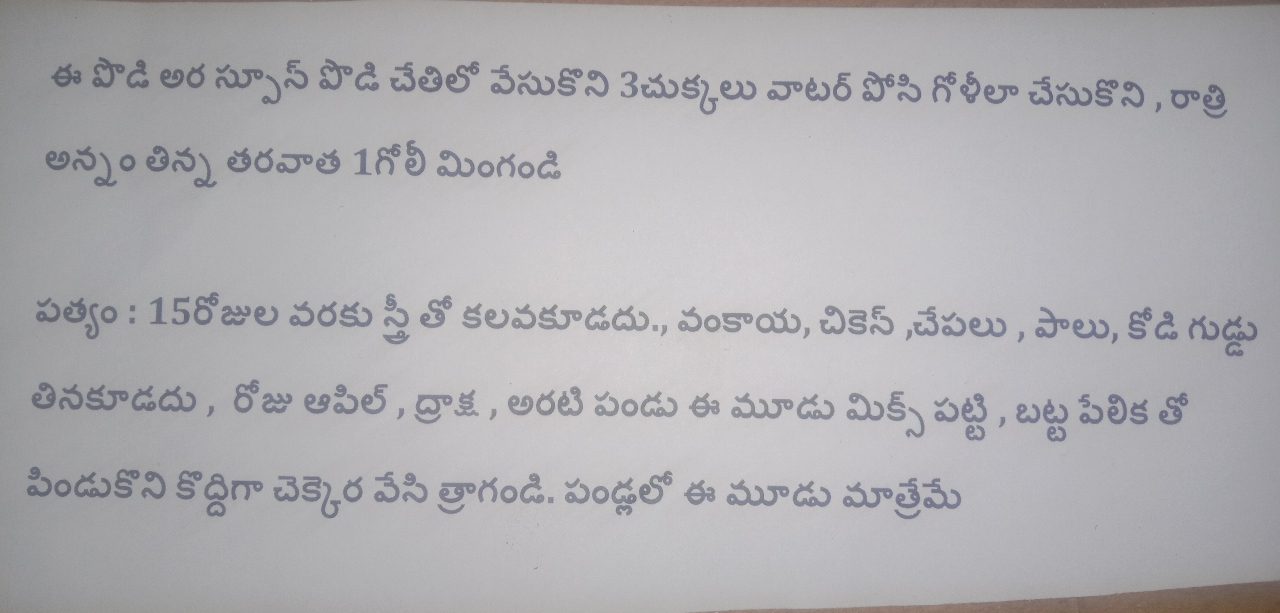 ఈ పొడి అర స్పూస్ పొడి చేతిలో వేసుకొని 3చుక్కలు వాటర్ పోసి గోళీలా చేసుకొని , రాత్రి
అన్నం తిన్న తరవాత 1గోలీ మింగండి
పత్యం : 15రోజుల వరకు స్త్రీ తో కలవకూడదు., వంకాయ, చికెస్ ,చేపలు , పాలు, కోడి గుడ్డు
తినకూడదు , రోజు ఆపిల్ , ద్రాక్ష , అరటి పండు ఈ మూడు మిక్స్ పట్టి , బట్ట పేలిక తో
పిండుకొని కొద్దిగా చెక్కెర వేసి త్రాగండి. పండ్లలో ఈ మూడు మాత్రేమే